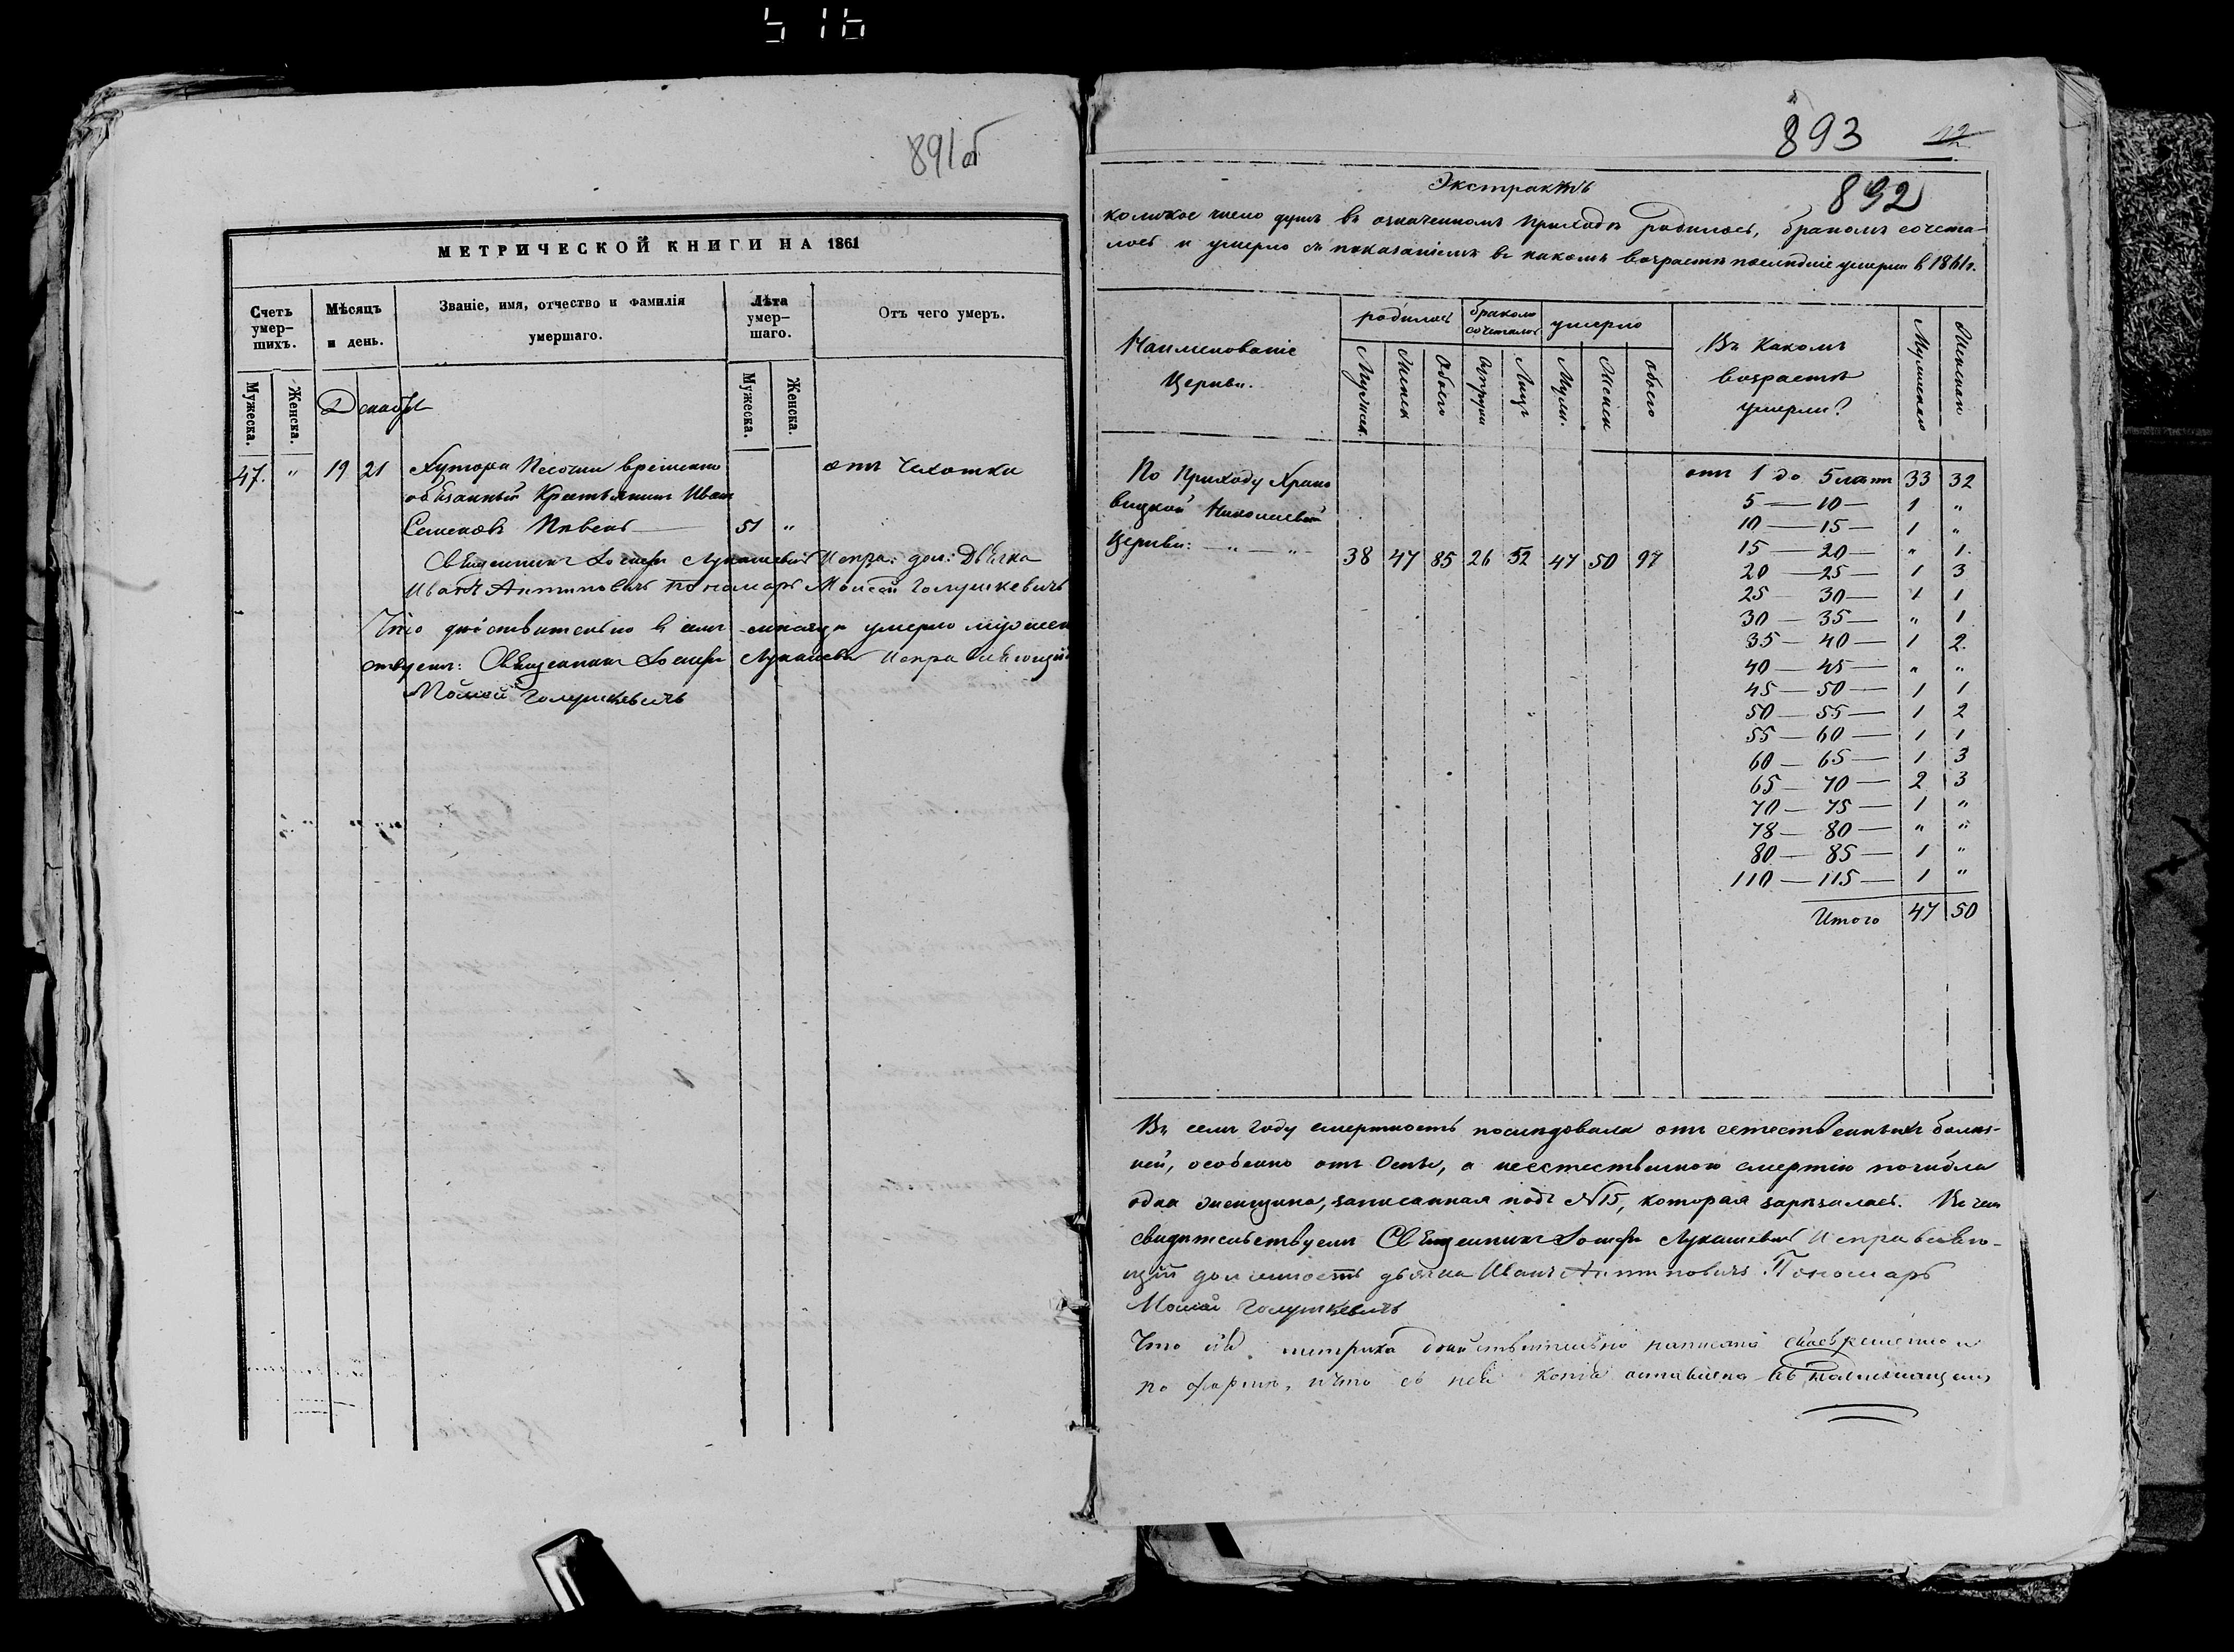 516
891об
МЕТРИЧЕСКОЙ КНИГИ НА 1861
Счетъ умер-шихъ.
Мѣсяцъ и день.
Званіе, имя, отчество и фамилія умершаго.
Лѣта умер-шаго.
Отъ чего умеръ.
Мужеска.
Женска.
Декабрь
Мужеска.
Женска.
47. " 19 21 Хутора Песочки временно отъ Чахотки
обязанный Крестьянинъ Иванъ
Семеновъ Пивень — 51 "
Священникъ Іосифъ Лукашевичъ Испра: дол: Дьячка
Иванъ Антиповичъ Пономарь Моисей Голушкевичъ
Что действительно въ семъ мѣсяцѣ умерло
Священникъ Іосифъ Лукашевичъ Исправляющій
Моисей Голушкевичъ
893
12
892
Экстрактъ
коликое число душъ въ означенномъ приходѣ родилось, бракомъ сочета-
лось и умерло съ показаніемъ въ какомъ возрастѣ послѣдніе умерли в 1861 г.
Наименованіе Церкви.
родилось
бракомъ сочеталось
умерло
Въ какомъ возрастѣ умерли?
Мужеска
Женска
Мужеск.
Женск
Обоего
Супруги
Лицъ
Муж.
Женск
Обоего
По Приходу
Николаевской
Церкви: — " — " —
38 47 85 26 52 47 50 97
отъ 1 до 5 лѣтъ 33 32
5 — 10 — 1 "
10 — 15 — 1 "
15 — 20 — " 1.
20 — 25 — 1 3
25 30 — 1 1
30 — 35 — " 1
35 — 40 — 1 2.
40 — 45 — " "
45 — 50 — 1 1
50 — 55 — 1 2
55 — 60 — 1 1
60 — 65 — 1 3
65 — 70 — 2 3
70 — 75 — 1 "
78 — 80 — " "
80 — 85 — 1 "
110 — 115 — 1 "
Итого 47 50
Въ семъ году смертность послѣдовала отъ естественныхъ болѣз-
ней, особенно отъ Оспы, а неестественною смертію погибла
одна женщина, записанная подъ №15, которая зарѣзалась. Въ чемъ
свидѣтельствуемъ Священникъ Іосифъ Лукашевичъ Исправляю-
щій должность дьячка Иванъ Антиповичъ Пономарь
Моисей Голушкевичъ
Что метрика дѣйствительно написана своевременно и
по формѣ, и что съ ней копія оставлена